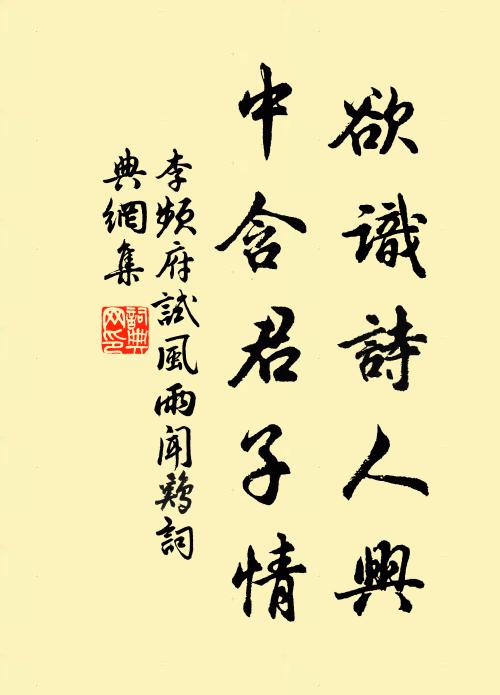 欲識詩人興
中含君子情
李頻府試風雨聞鷄詞
典網集
詞典
网印